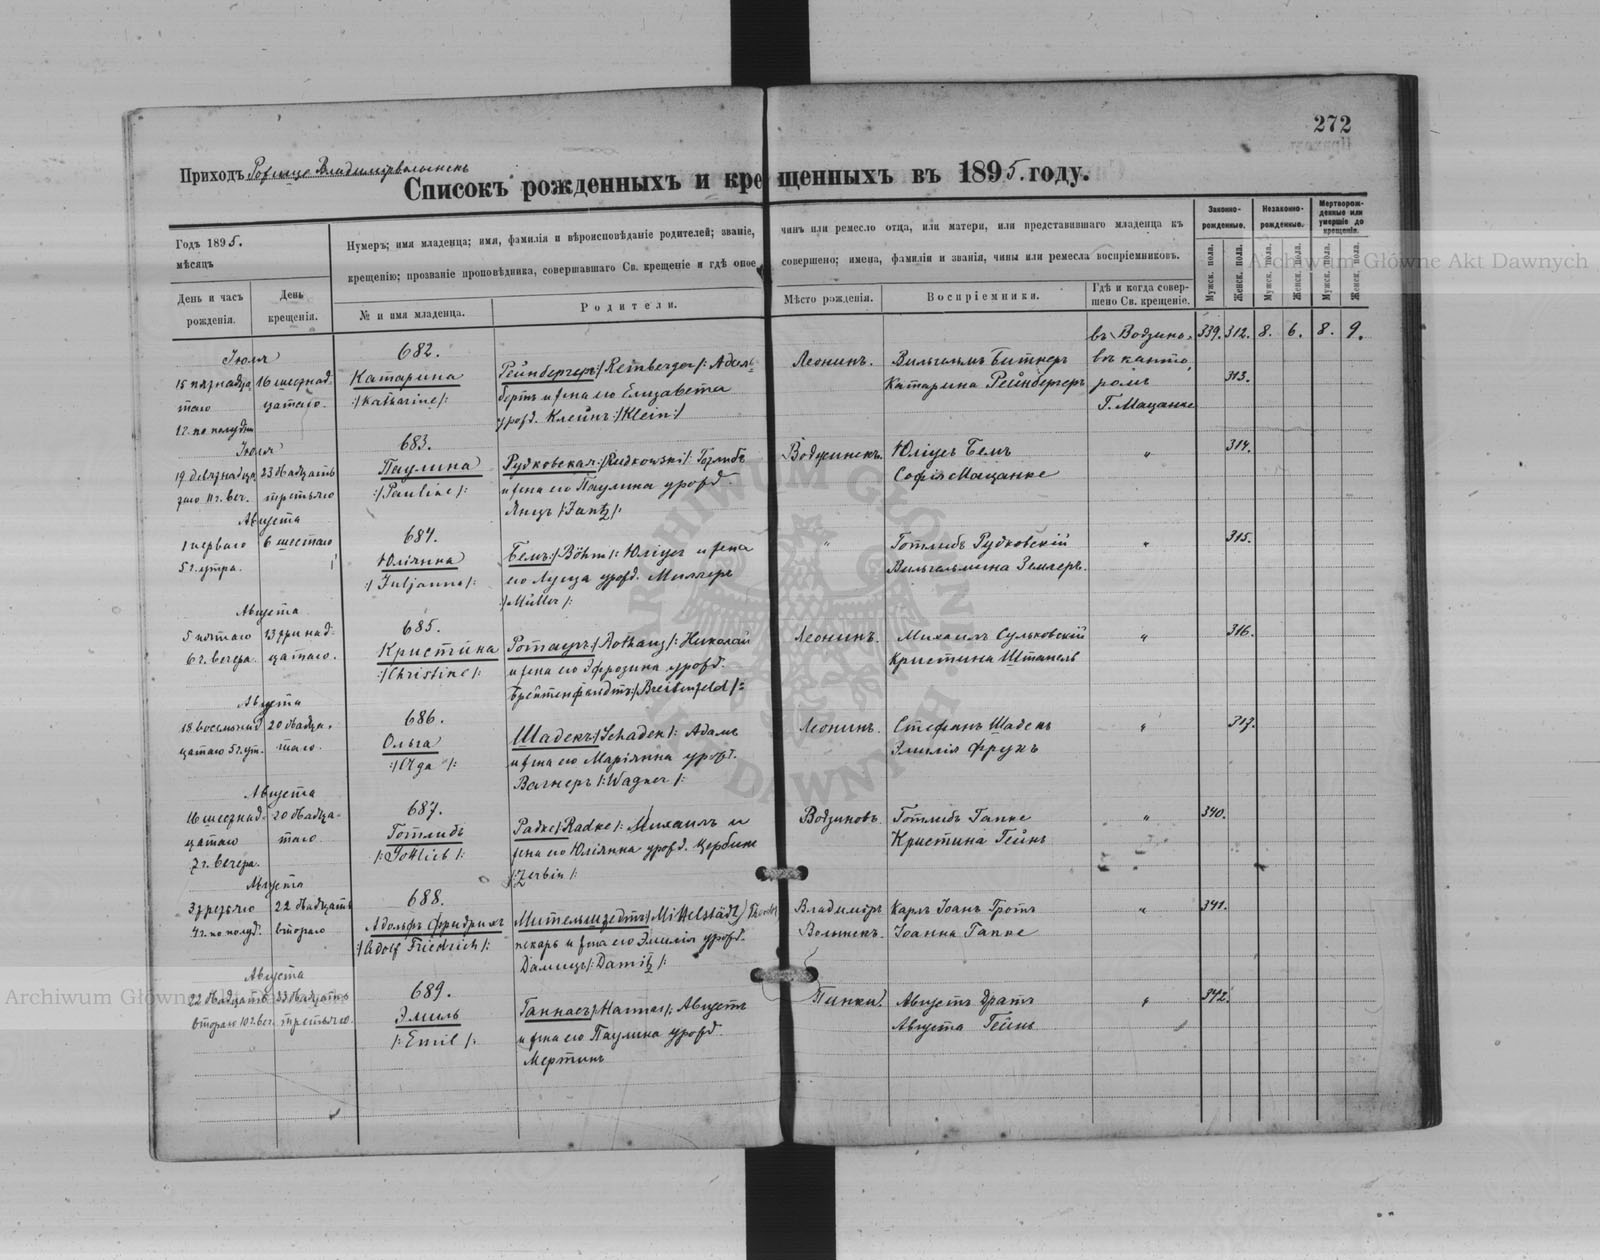 272
Приходъ Рожище Владимірволынскъ
Списокъ рожденныхъ и крещенныхъ въ 1895. году.
Годъ 1895.
мѣсяцъ
День и часъ рожденія.
День крещенія.
Нумеръ; имя младенца; имя, фамилія и вѣроисповѣданіе родителей; званіе, чинъ или ремесло отца, или матери, или представившаго младенца къ
крещенію; прозваніе проповѣдника, совершавшаго Св. крещеніе и гдѣ оное совершено; имена, фамиліи и званія, чины или ремесла воспріемниковъ.
№ и имя младенца.
Родители.
Мѣсто рожденія.
Воспріемники.
Гдѣ и когда совершено Св. крещеніе.
Законно-рожденные.
Незаконно-рожденные.
Мертворожденные или умершіе до крещенія.
Мужск. пола.
Женск. пола.
Мужск. пола.
Женск. пола.
Мужск. пола.
Женск. пола.
339. 312. 8. 6. 8. 9.
Іюля
15 пятнадца
таго
12. по полудни
16 шестнад
цатаго.
682.
Катарина
:/Katharine/:
Рейнбергеръ:/Reinberger/: Адаль
бертъ и жена его Елизавета
урожд. Клейнъ:/Klein:/
Леонинъ.
Вильгельмъ Битнеръ
Катарина Рейнбергеръ
въ Водзино,
въ канто,
ромъ
Г. Мацанке
313.
Іюля
19 девятнадца
таго 11 г. веч.
23 двадцать
третьяго
683.
Паулина
:/Pauline/:
Рудковская:/Rudkowski/: Готлибъ
и жена его Паулина урожд.
Янцъ /Jantz/:
Юліусъ Бемъ
Софія Мацанке
"
314.
Августа
1 перваго
5 г. утра.
6 шестаго
684.
Юліянна
:/Juljanna/:
Бемъ:/Böhm/: Юліусъ и жена
его Луиза урожд. Миллеръ
:/Müller/:
"
Готлибъ Рудковскій
Вильгельмина Землеръ.
"
315.
Августа
5 пятаго
6 г. вечера.
13 три над-
цатаго.
685.
Кристина
:/Christine/:
Николай
и жена его Эфрозина урожд.
Брейтенфельдтъ:/Breitenfeld/:
Леонинъ.
Михаилъ Сульковскій
Кристина Штапель
"
316.
Августа
18 восьмынад
цатаго 5 г. ут.
20 двадца.
таго.
686.
Ольга
:/Olga/:
Шадекъ:/Schadek/: Адамъ
и жена его Маріянна урожд.
Вагнеръ /:Wagner/:
Леонинъ.
Стефанъ Шадекъ
Эмилія Фрукъ
"
317.
Августа
16 шестнад.
цатаго
7 г. вечера.
20 двадца-
таго.
687.
Готлибъ
/:Gottlieb/:
Радке/:Radke/: Михаилъ и
жена его Юліянна урожд. Цербине
/:Zerbin/:
Водзиновъ.
Готлибъ Гапке
Кристина Гейнъ
"
340.
Августа
3 третьяго
4 г. по полуд.
22 двадцать
втораго
688.
Адольфъ Фридрихъ
:/Adolf Friedrich/:
Мительштедтъ/:Mittelstädt/:
пекарь и жена его Эмилія урожд.
Дамицъ/:Damitz/:
Владиміръ
Волынскъ.
Карлъ Іоанъ Гротъ
Іоанна Гапке
"
341.
Августа
22 двадцать
втораго 10 г. веч.
23 двадцать
третьяго.
689.
Эмиль
/:Emil/:
Ганнасъ/:Hannas/: Августъ
и жена его Паулина урожд.
Мертинъ
Пинки.
Августъ Дратъ
Августа Гейнъ
"
342.
Archiwum Główne Akt Dawnych
ARCHIWUM GŁÓWNE AKT DAWNYCH